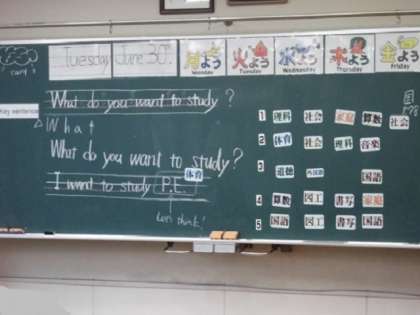 Tuesday June 30th
月よう Monday
火よう Tuesday
水よう Wednesday
木よう Thursday
金よう Friday
Key sentence
What do you want to study ?
What
What do you want to study?
体育
I want to study P.E.
Let's think!
1 理科 社会 家庭 算数 社会
2 体育 社会 理科 音楽
3 道徳 外国語 国語
4 算数 図工 書写 家庭
5 国語 図工 書写 国語